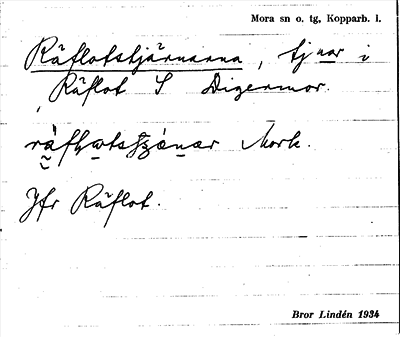 Mora sn o. tg, Kopparb. l.
Räflotstjärnarna, tjnar i
Räflot S Digermor.
Mork.
Jfr Räflot.
Bror Lindén 1934